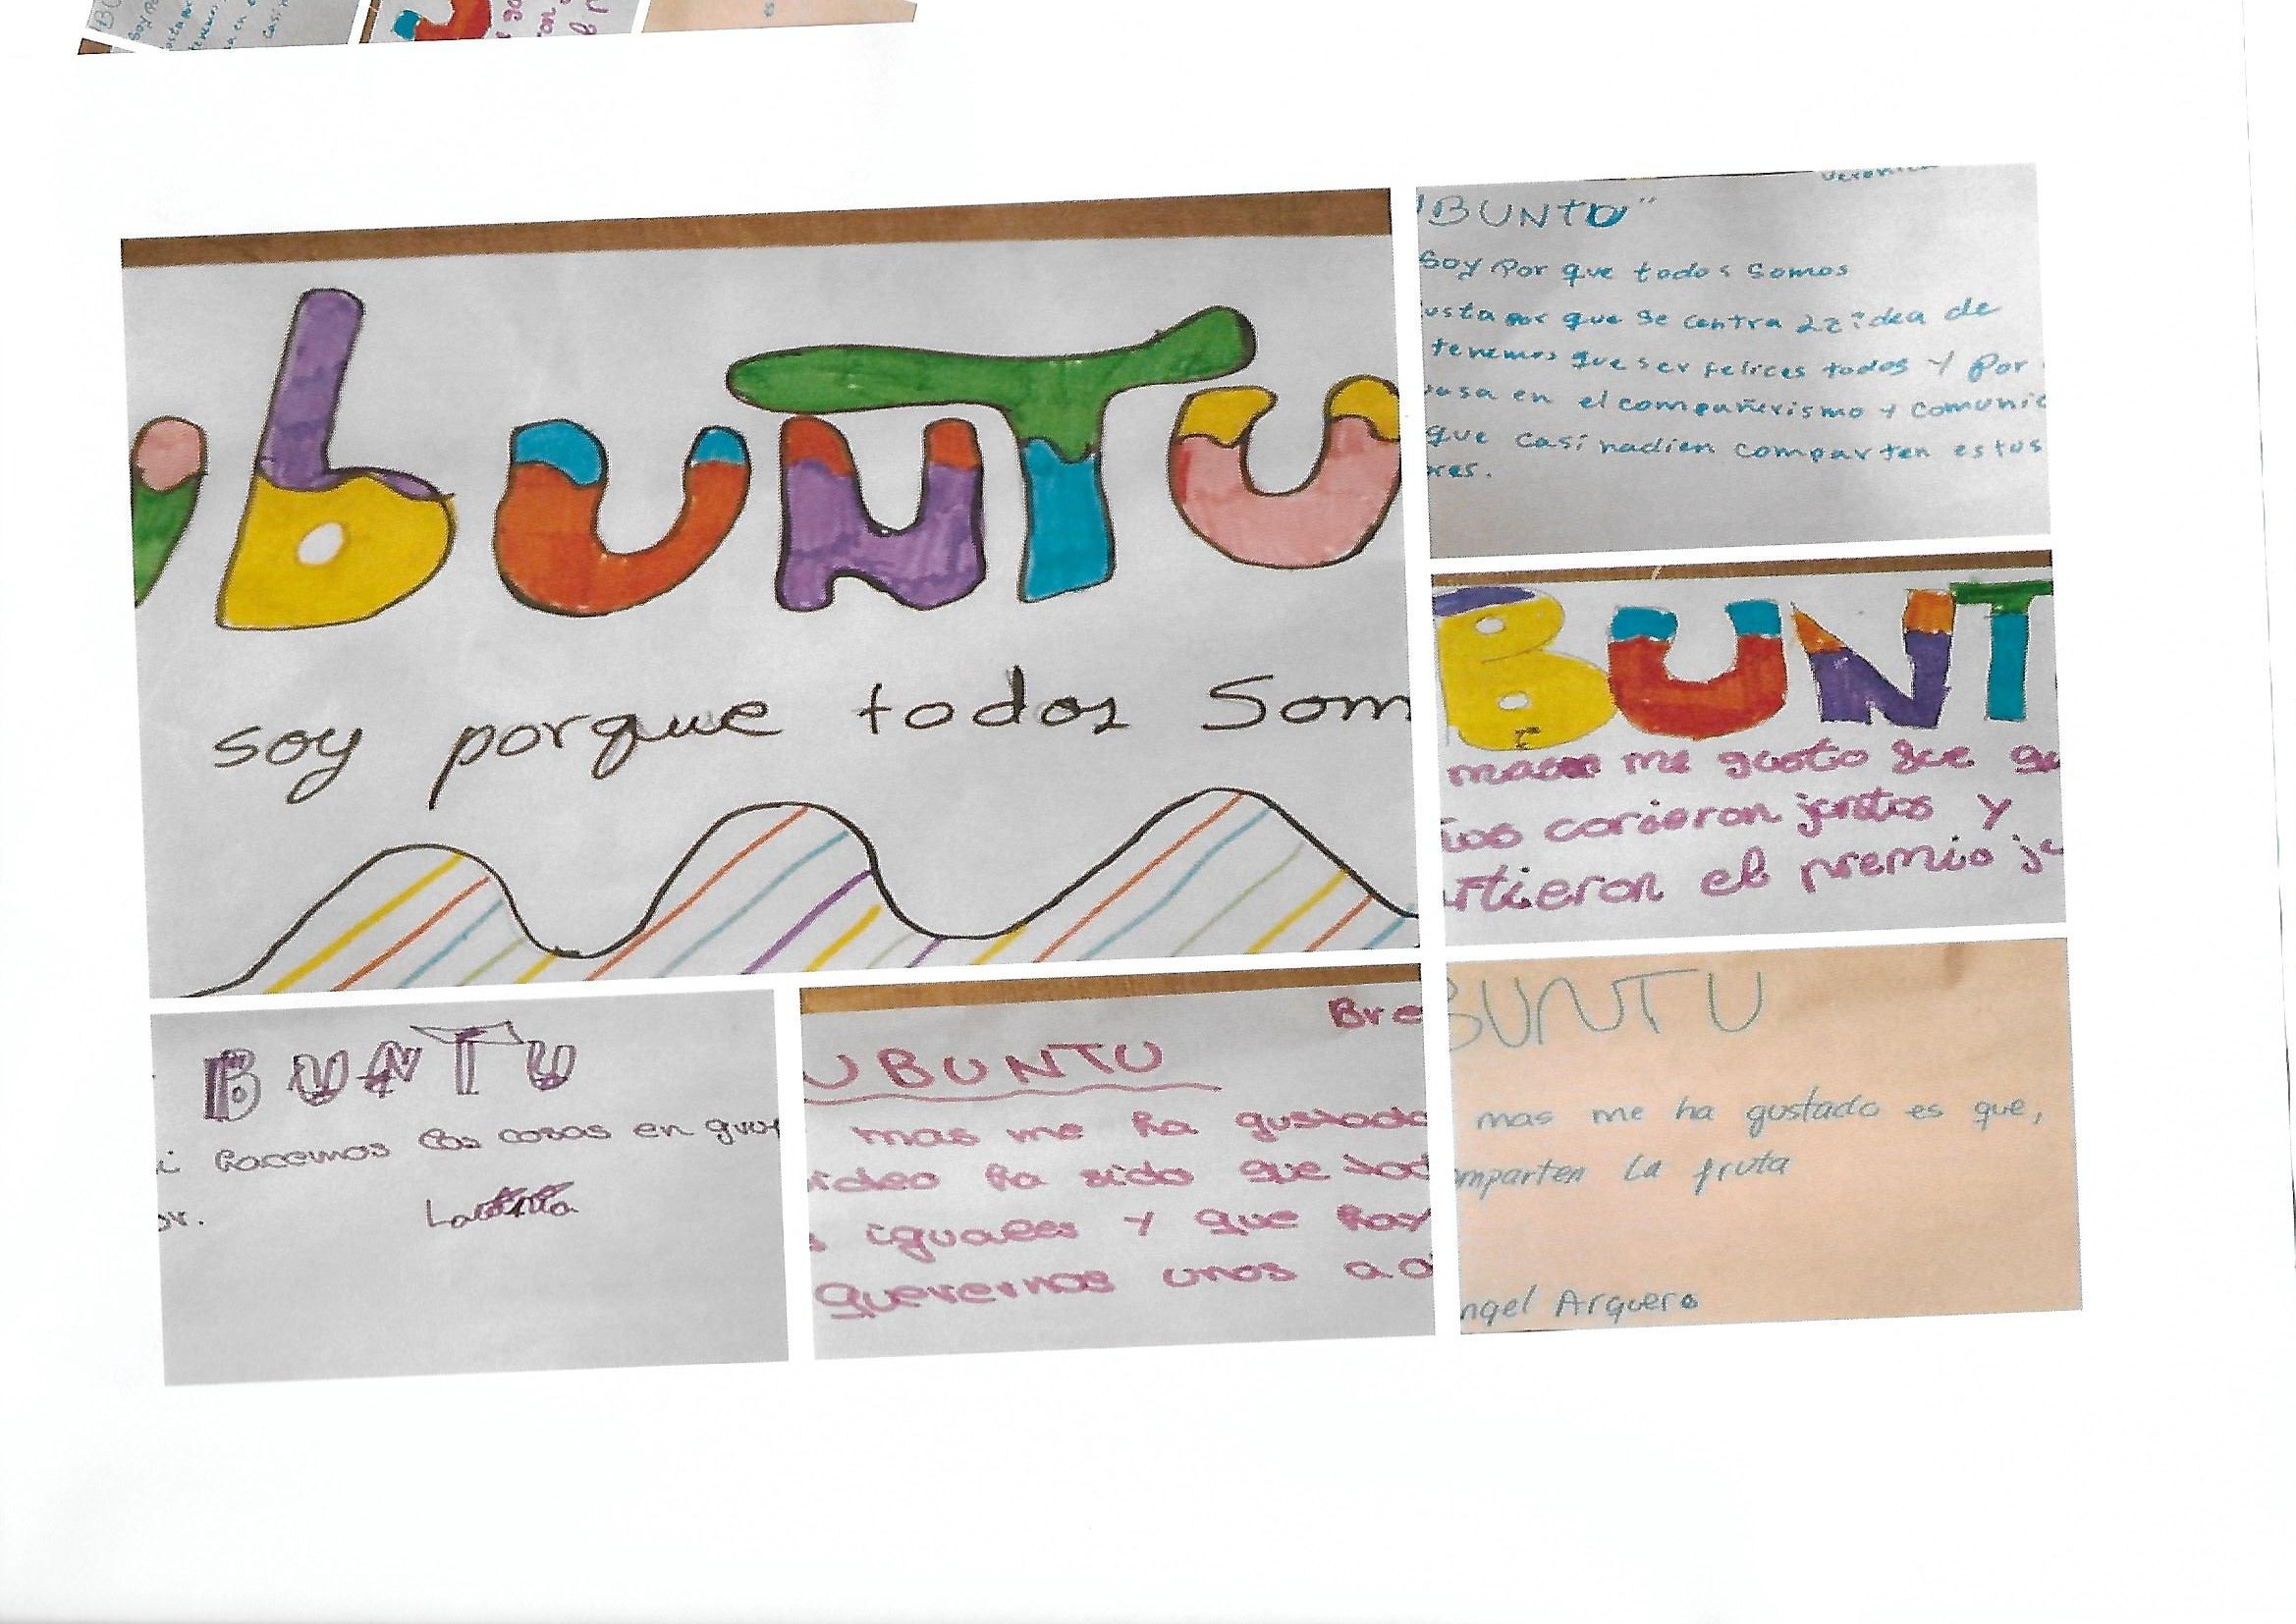 ubunTu
soy porque todos Som
Veronica
"BUNTU"
Soy Por que todos Somos
usta por que se centra idea de
tenemos que ser felices todos y Por
basa en el compañerismo y comunic
que casi nadien comparten estos
ores.
BUNT
mas me gusto que
ños corieron juntos y
rtieron el premio ju
BUNTU
si hacemos las cosas en grup
or.
Bre
UBUNTU
mas me ha gustado
video ha sido que tod
s iguales y que hay
querernos unos a o
BUNTU
mas me ha gustado es que,
mparten la fruta
ngel Arquero